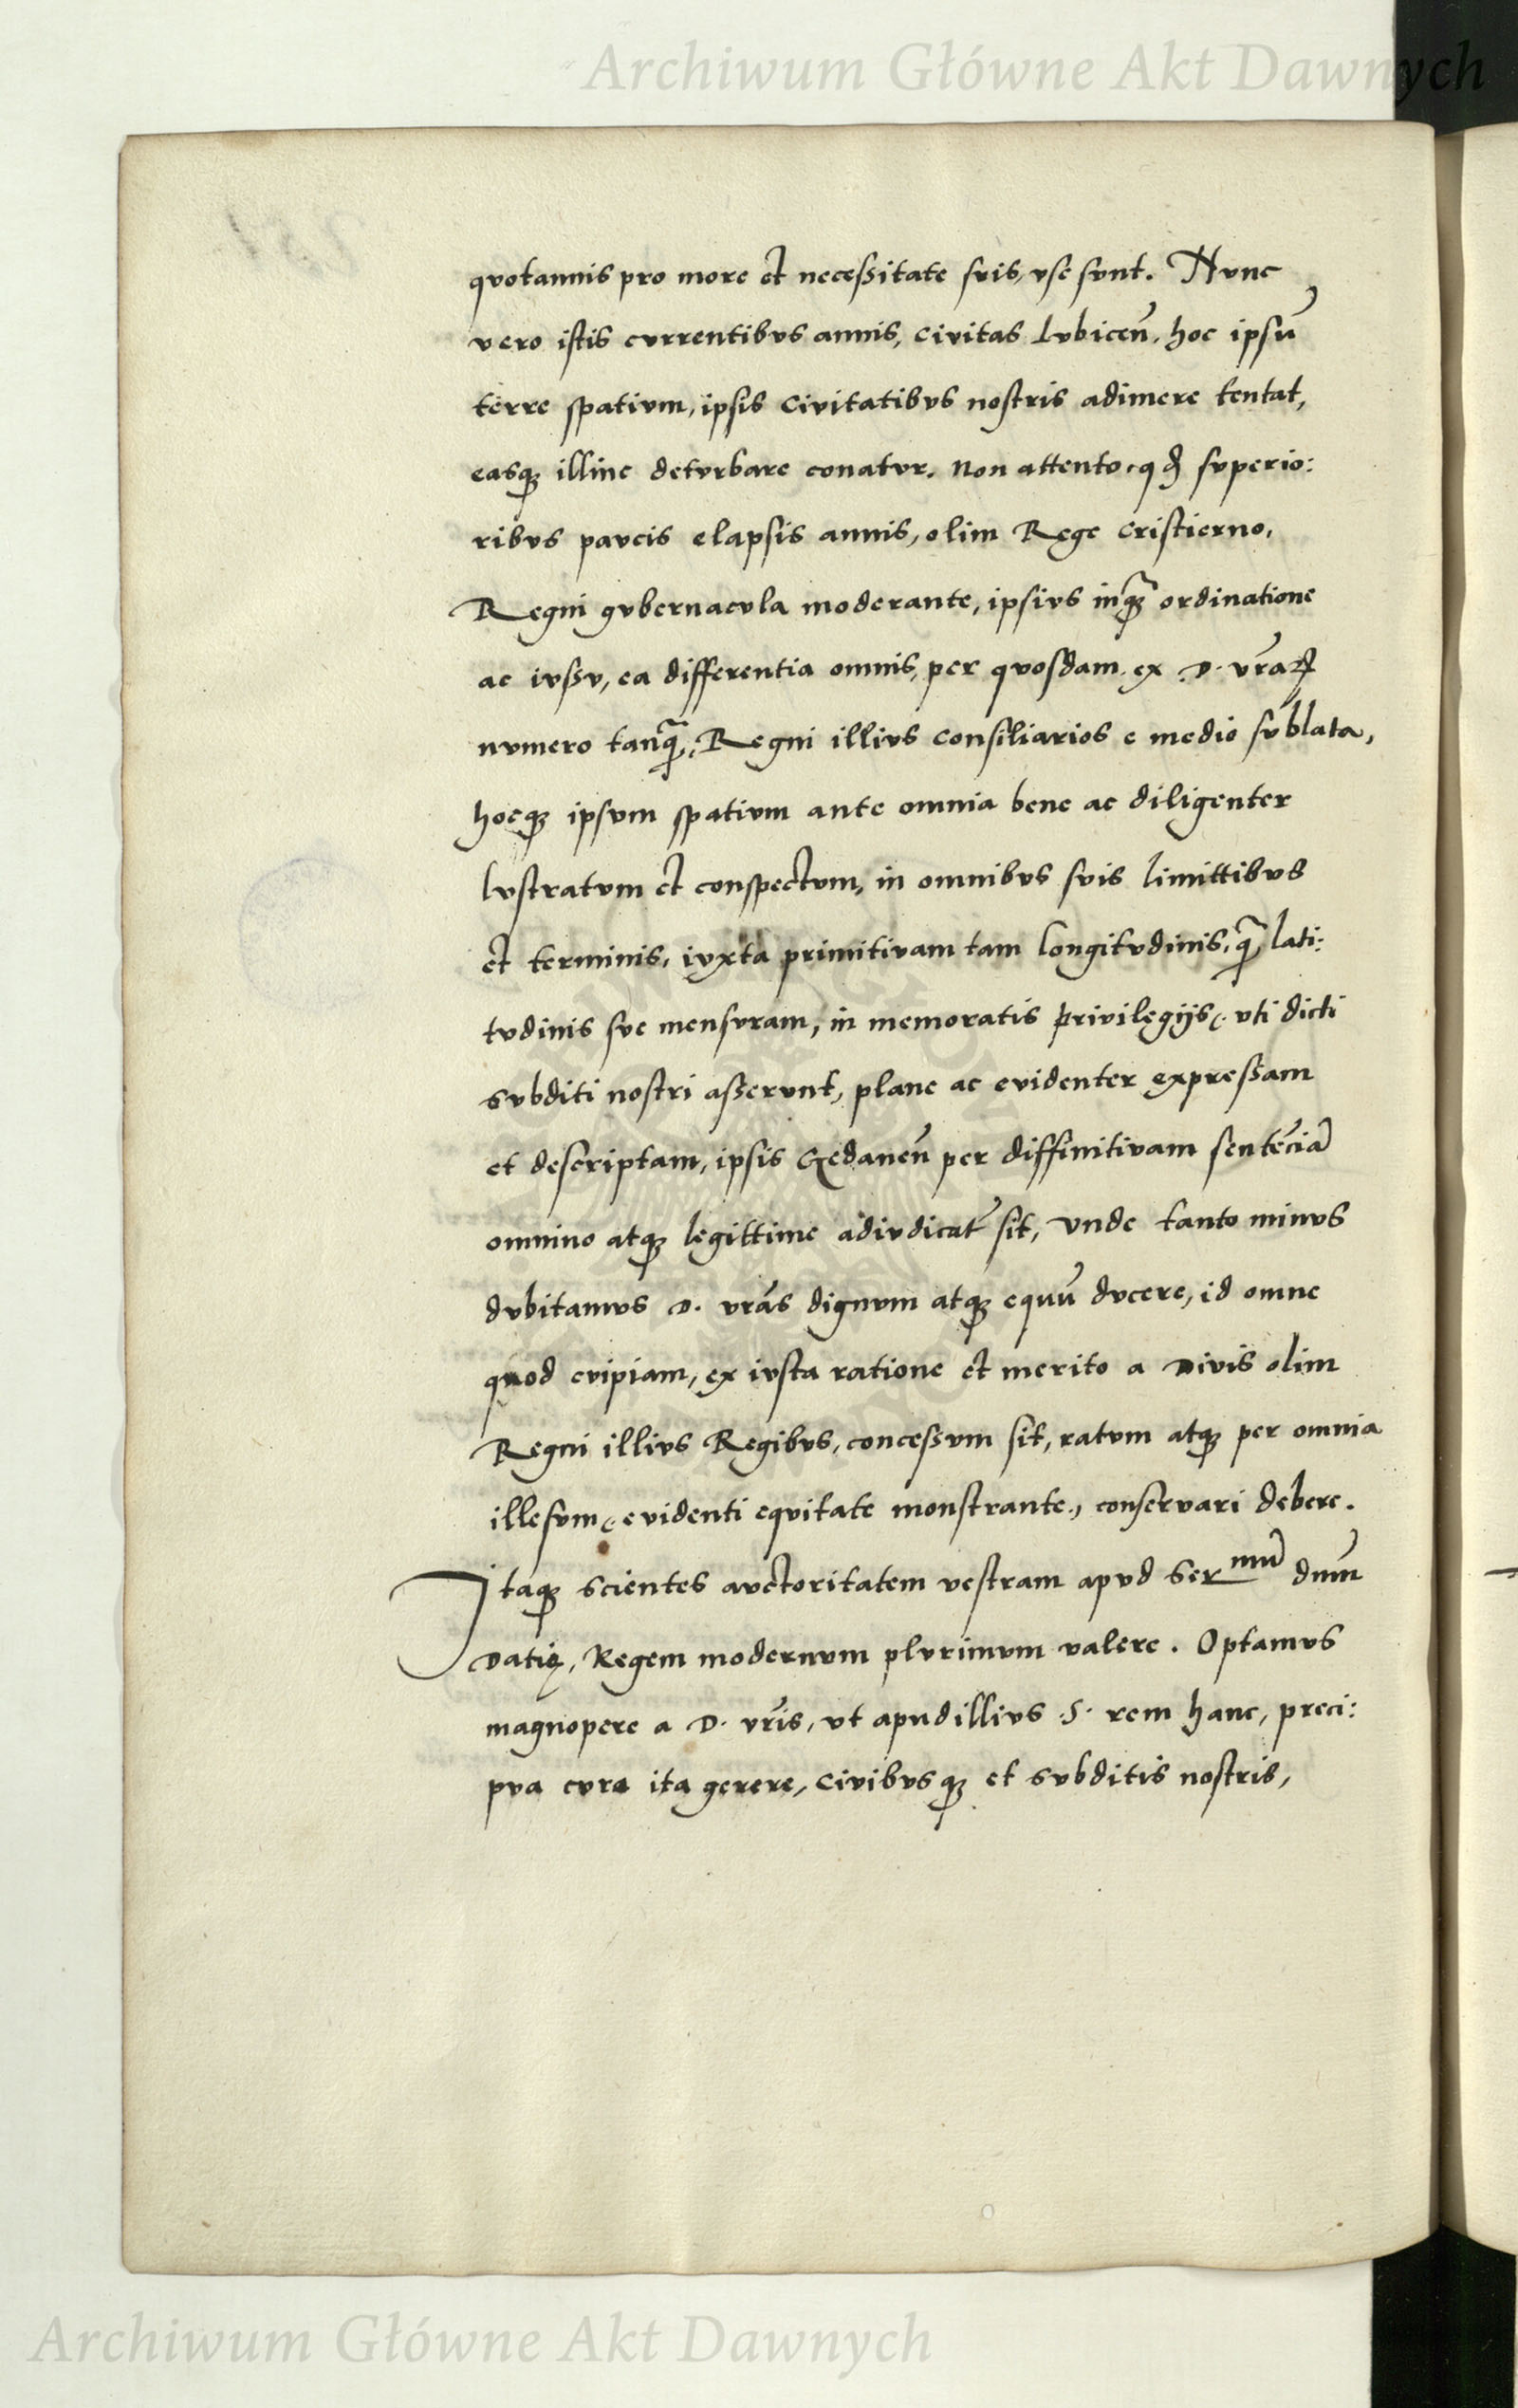 Archiwum Główne Akt Dawnych
quotannis pro more et necessitate suis, use sunt. Nunc
vero istis currentibus annis, Civitas Lubiceñ. hoc ipsũ
terre spatium, ipsis Civitatibus nostris adimere tentat,
easq; illinc deturbare conatur. Non attento, qd superio:
ribus paucis elapsis annis, olim Rege Cristierno,
Regni gubernacula moderante, ipsius inq̃; ordinatione
ac iussu, ea differentia omnis, per quosdam ex D. vr̃aꝝ
numero tanq̃, Regni illius Consiliarios e medio sublata,
hocq; ipsum spatium ante omnia bene ac diligenter
lustratum et conspectum, in omnibus suis limittibus
et terminis, iuxta primitivam tam longitudinis, q̃ lati:
tudinis sue mensuram, in memoratis privilegijs, uti dicti
subditi nostri asserunt, plane ac evidenter expressam
et descriptam, ipsis Gedaneñ per diffinitivam sentẽciã
omnino atq; legittime adiudicat̃ sit, Unde tanto minus
dubitamus D. vr̃as dignum atq; equũ ducere, id omne
quod cuipiam, ex iusta ratione et merito a Divis olim
Regni illius Regibus, concessum sit, ratum atq; per omnia
illesum, evidenti equitate monstrante, conservari debere.
Itaq; scientes auctoritatem vestram apud Ser mũ dnũ
Datię, Regem modernum plurimum valere. Optamus
magnopere a D. vr̃is, ut apud illius .S. rem hanc, preci:
pua cura ita gerere, Civibusq; et subditis nostris,
Archiwum Główne Akt Dawnych